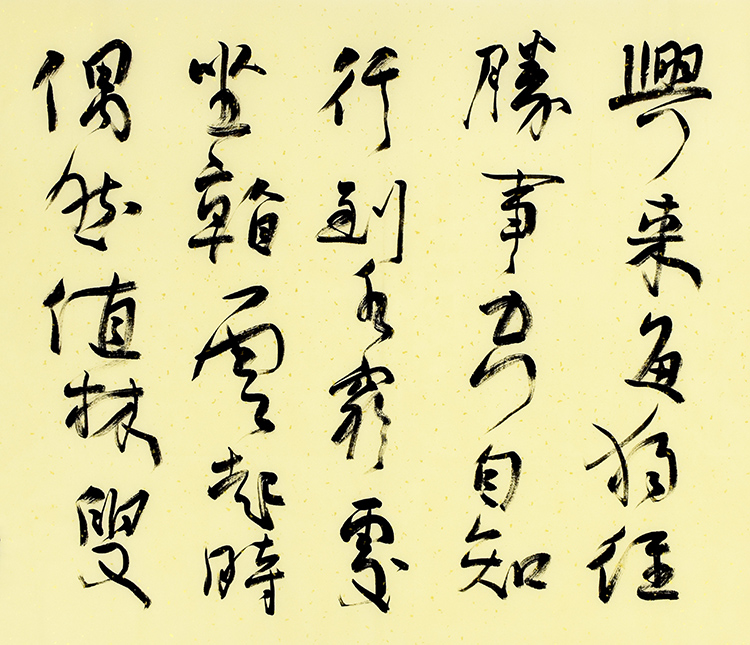 興來每獨往
勝事空自知
行到水窮處
坐看雲起時
偶然值林叟